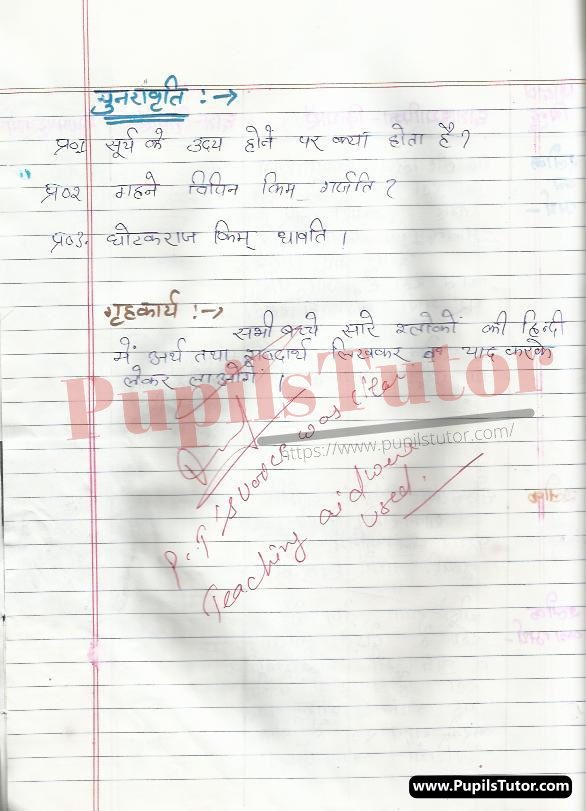 पुनरावृति :→
प्र०1 सूर्य के उदय होने पर क्या होता है ?
प्र०२ गहने विपिन किम गर्जति ?
प्र०3. घोटकराज किम् धावति ।
गृहकार्य :→
सभी बच्चे सारे श्लोकों की हिन्दी
में अर्थ तथा शब्दार्थ लिखकर व याद करके
लेकर लाओगे ।
PupilsTutor
https://www.pupilstutor.com/
P.T's voice was clear
Teaching aid were
used.
www.PupilsTutor.com